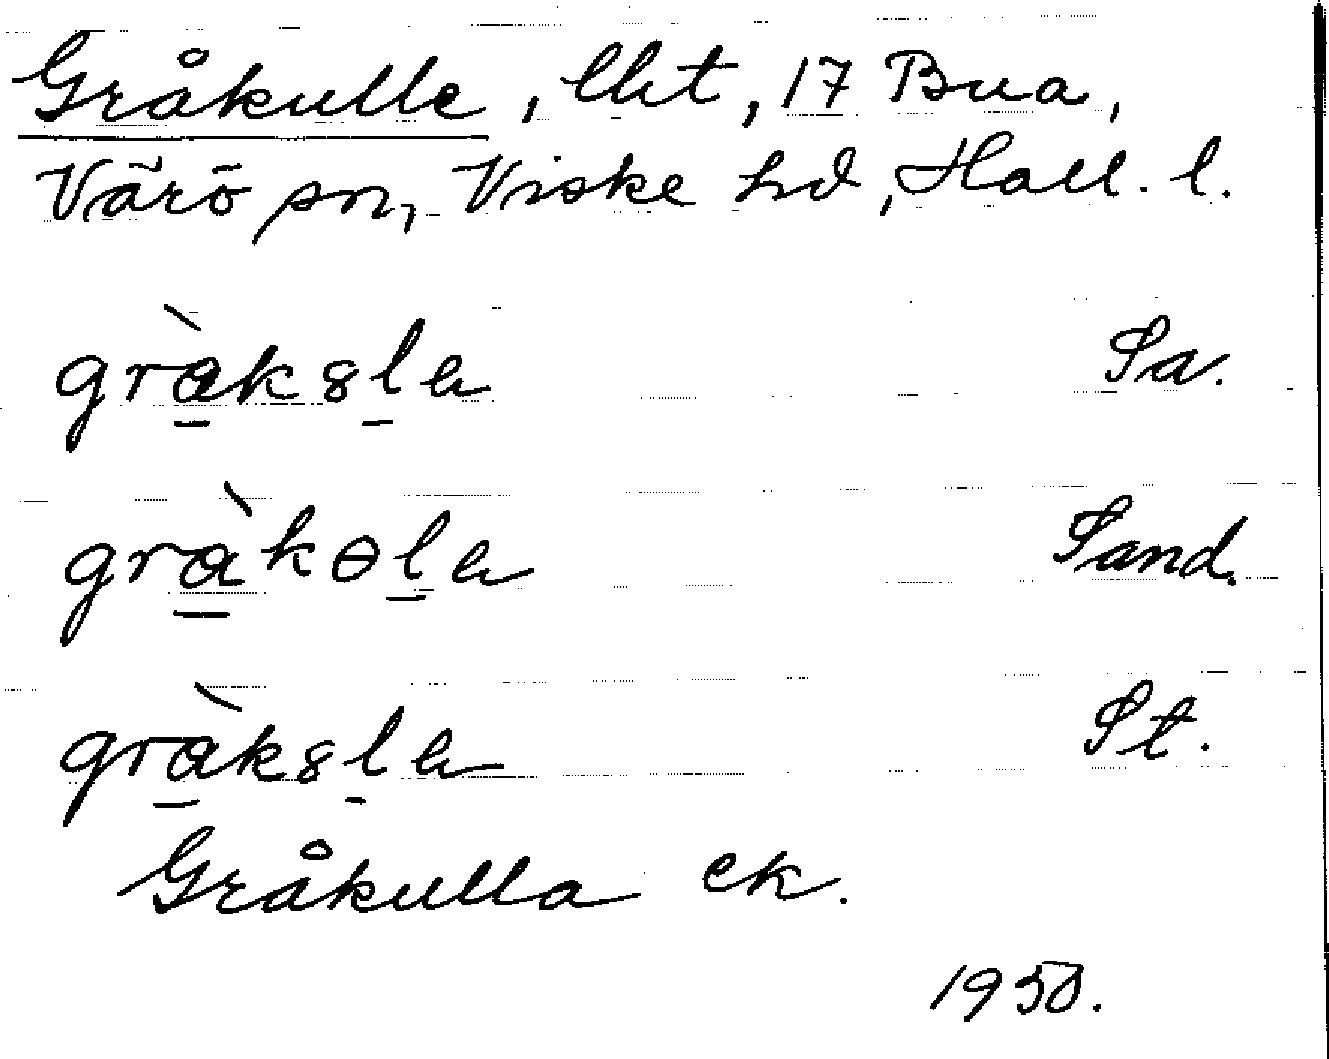 Gråkulle, lht, 17 Bua,
Värö sn, Viske hd, Hall. l.
gràk8la Sa.
gràkɵla Sand.
gràk8la St.
Gråkulla ek.
1950.